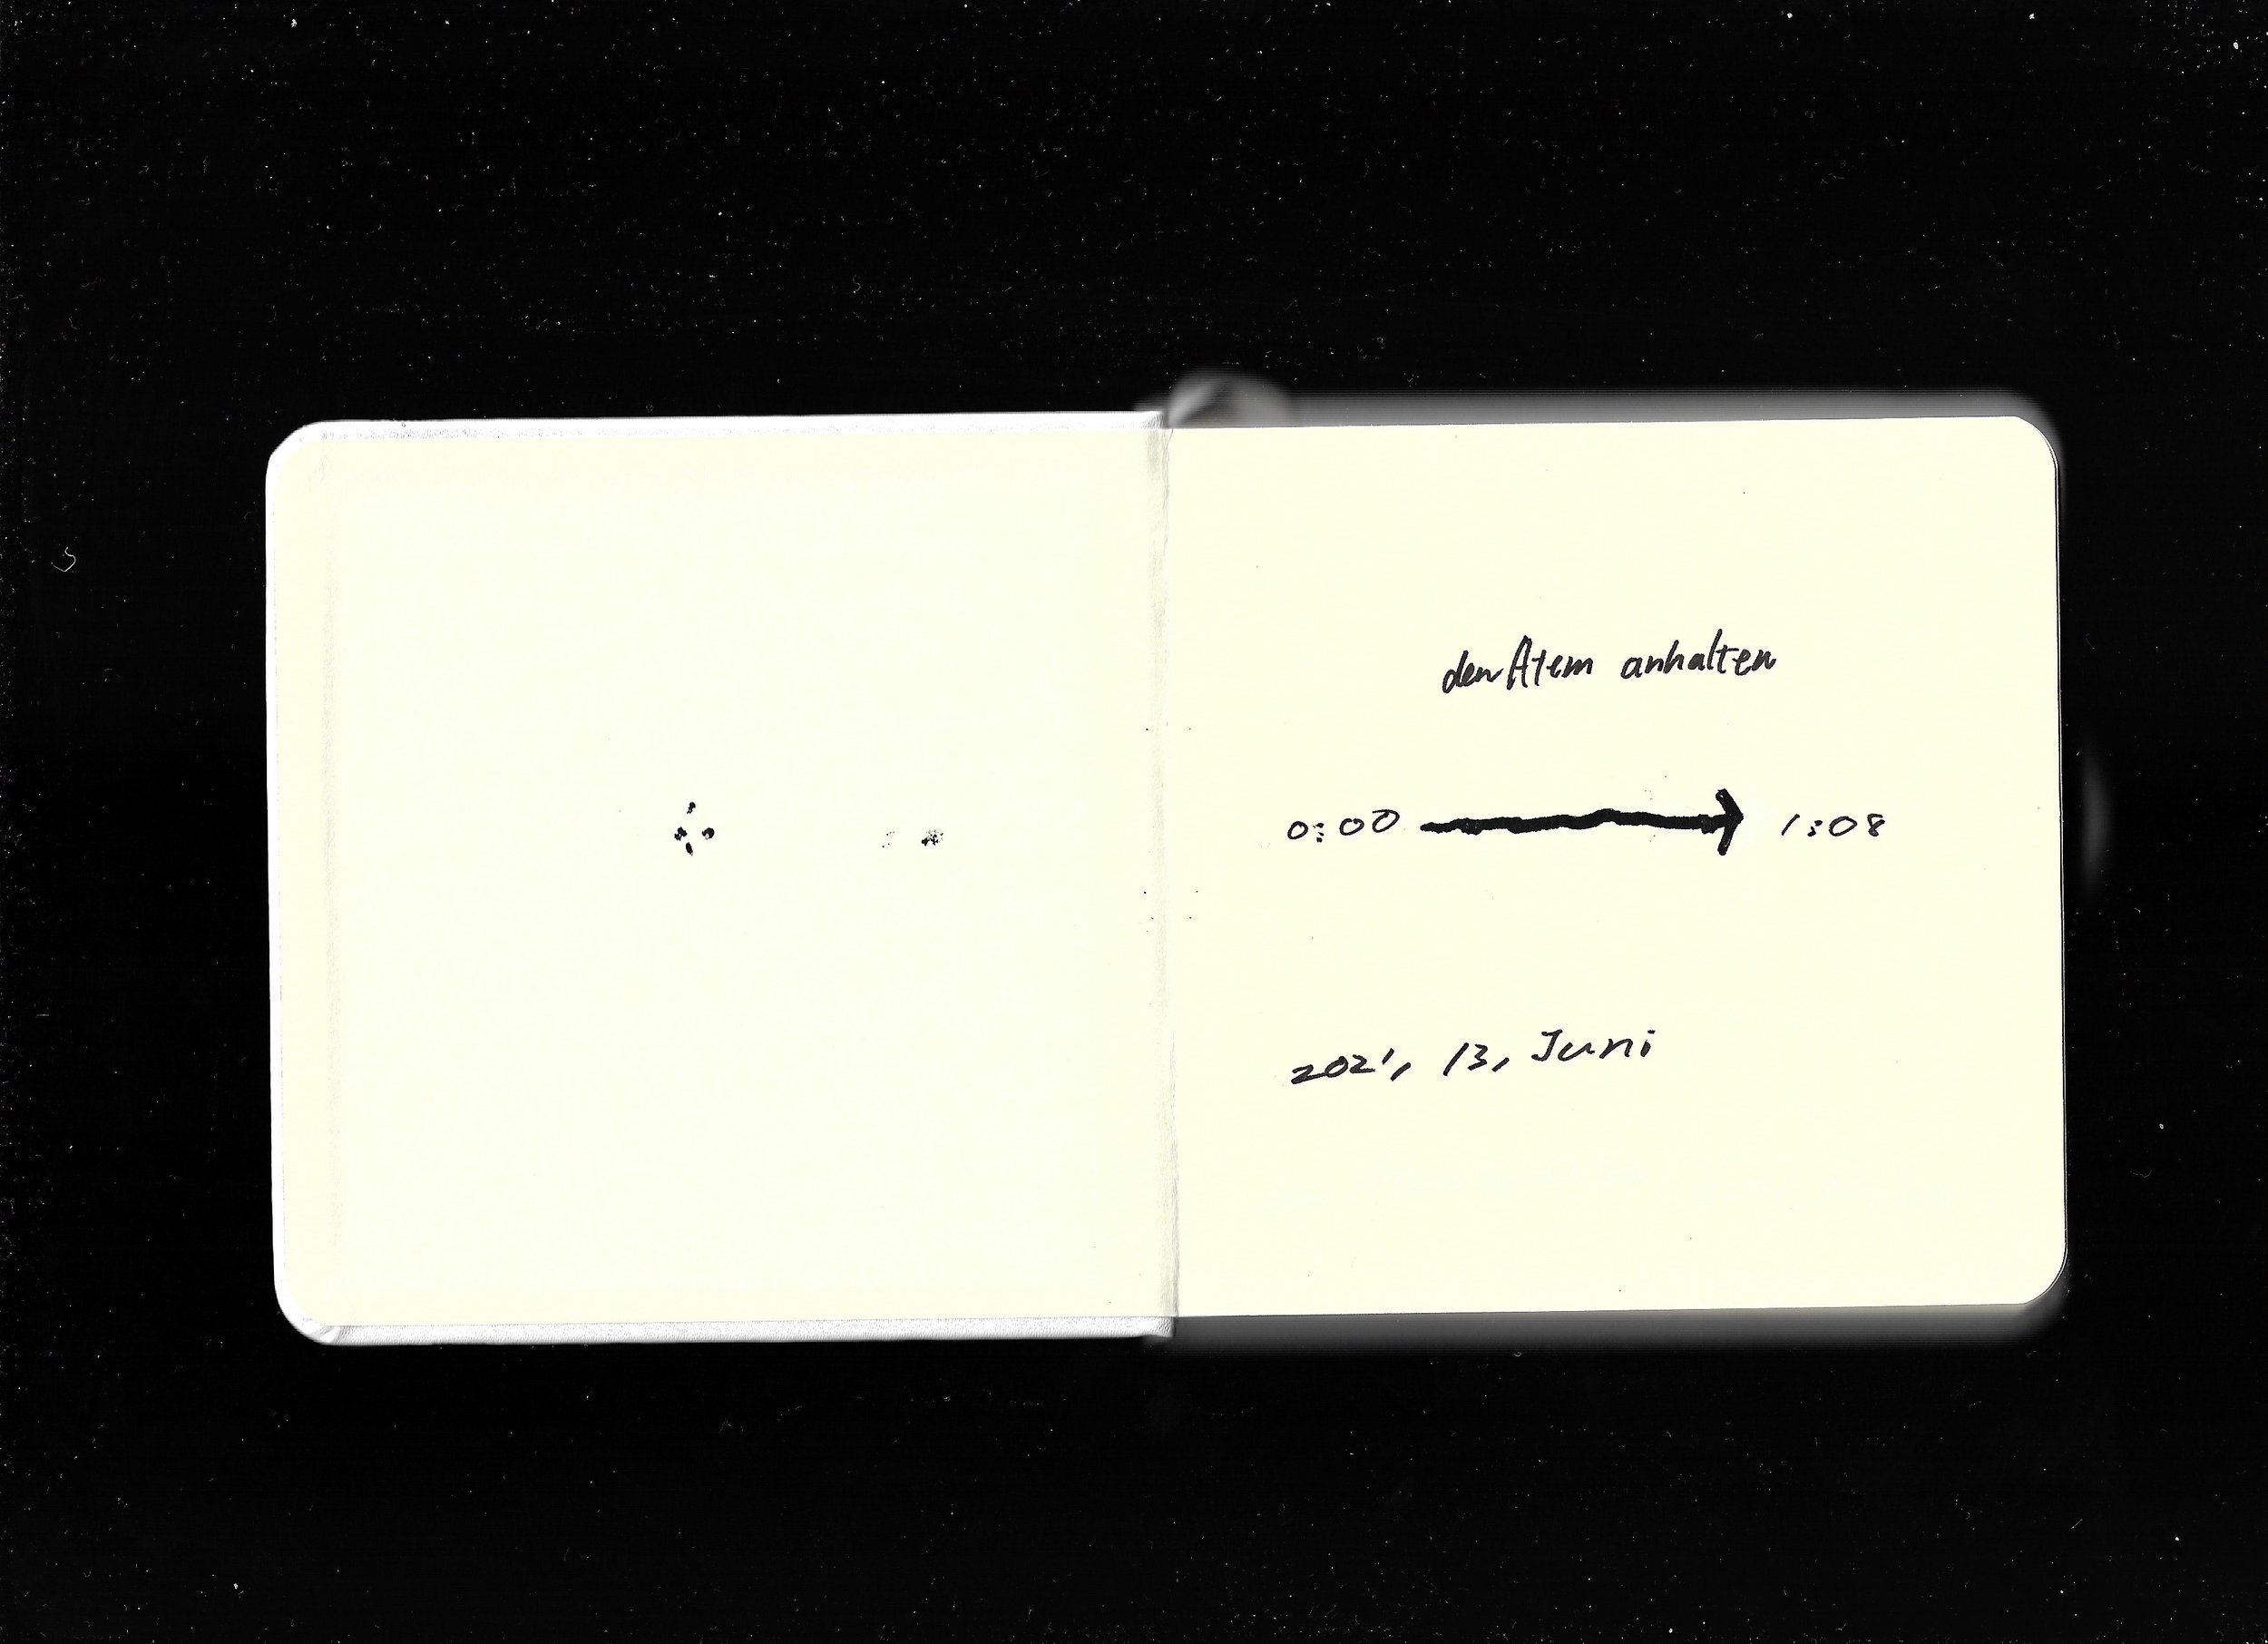 den Atem anhalten
0:00 → 1:08
2021, 13, Juni